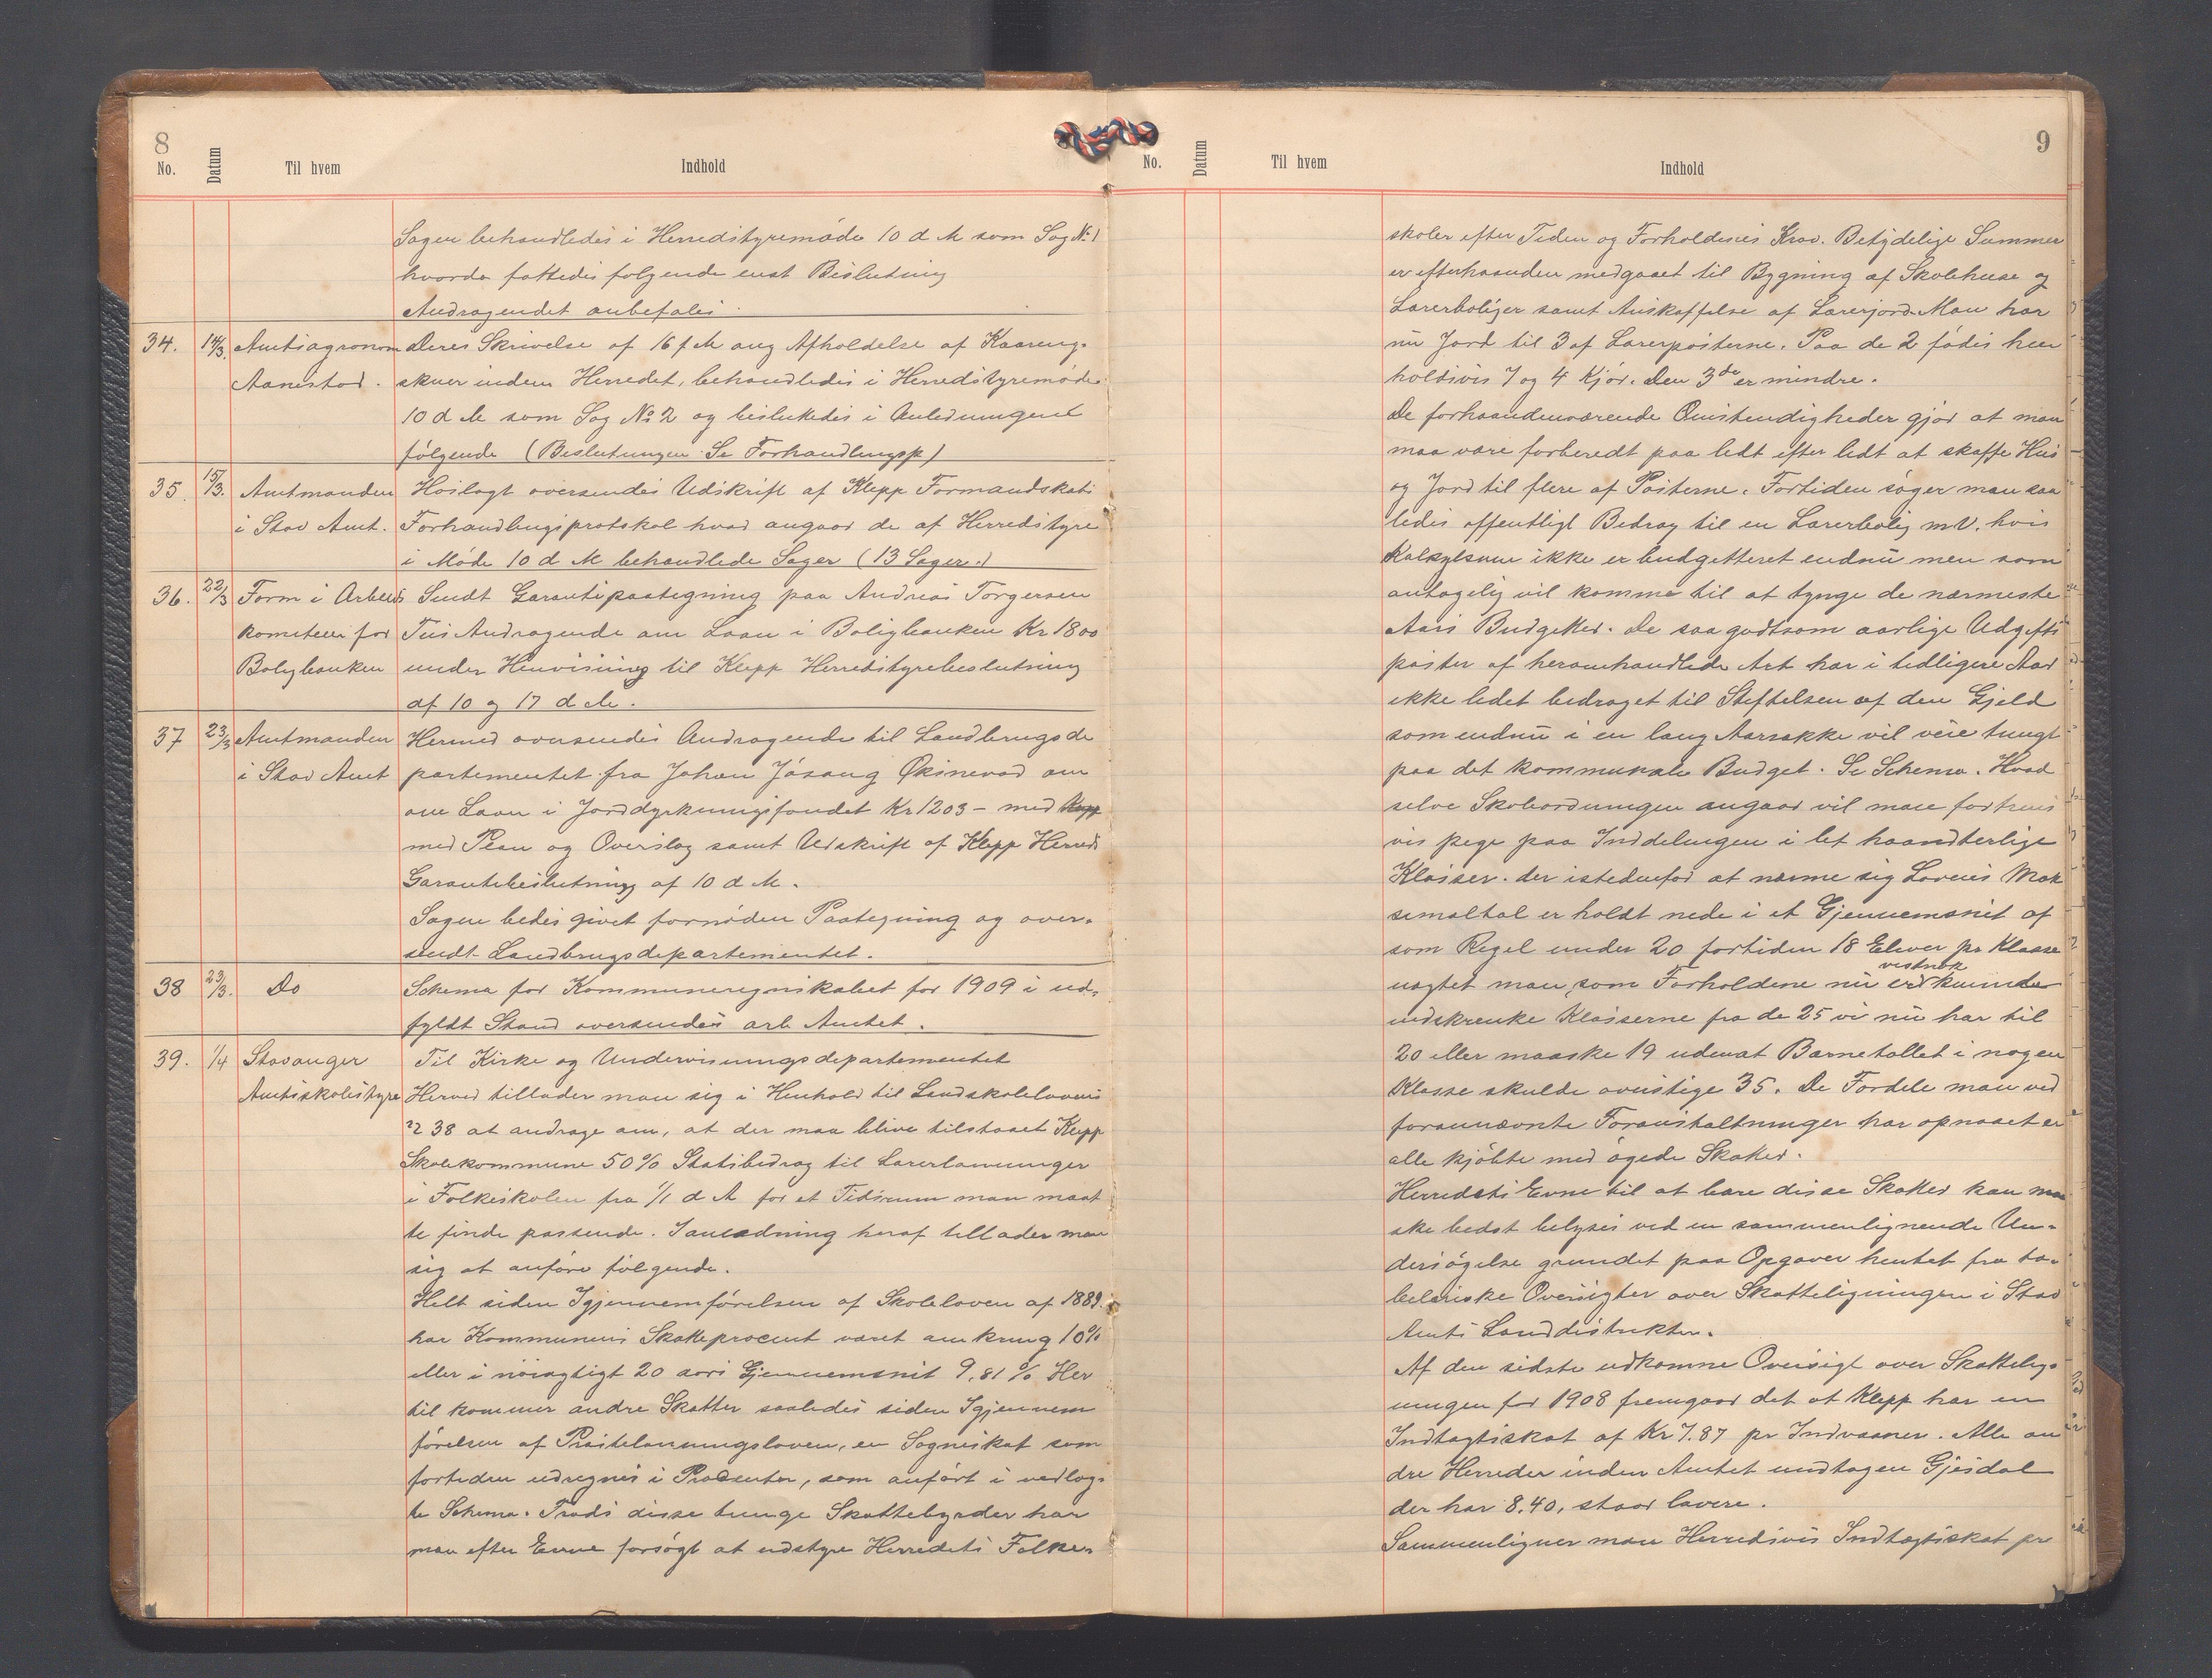 8
No. Datum Til hvem Indhold
Sagen behandledes i Herredstyremøde 10 d M som Sag № 1
hvorda fattedes følgende enst Beslutning
Andragendet anbefales.
34. 14/3. Amtsagronom Deres Skrivelse af 16 f M ang Afholdelse af Kaarings
Aanestad. skuer inden Herredet, behandledes i Herredstyremøde
10 d M som Sag № 2 og beslutedes i Anledningens
følgende (Beslutningen Se Forhandlingsp)
35. 15/3. Amtmanden Hoslagt oversendes Udskrift af Klepp Formandskabs
i Stav Amt. Forhandlingsprotokol hvad angaar de af Herredstyre
i Møde 10 d M behandlede Sager (13 Sager.)
36. 22/3 Form i Arbeids Sendt Garantipaategning paa Andreas Torgersen
komiteen for Tu's Andragende om Laan i Boligbanken Kr 1800
Boligbanken under Henvisning til Klepp Herredstyrebeslutning
af 10 og 17 d M.
37 23/3 Amtmanden Hermed oversendes Andragende til Landbrugsde
i Stav Amt partementet fra Johan Jåsang Øksnevad om
om Laan i Jorddyrkningsfondet Kr 1203 – med Klepp
med Plan og Overslag samt Udskrift af Klepp Herreds
Garantibeslutning af 10 d M.
Sagen bedes givet fornøden Paategning og over-
sendt Landbrugsdepartementet.
38 23/3. Do Schema for Kommuneregnskabet for 1909 i ud-
fyldt Stand oversendes arb Amtet.
39. 1/4 Stavanger Til Kirke og Undervisningsdepartementet
Amtsskolestyre Herved tillader man sig i Henhold til Landskolelovens
§ 38 at andrage om, at der maa blive tilstaaet Klepp
Skolekommune 50% Statsbidrag til Lærerlønninger
i Folkeskolen fra 1/1 d A for et Tidsrum man maat
te finde passende. I anledning heraf tillader man
sig at anføre følgende.
Helt siden Igjennemførelsen af Skoleloven af 1889
har Kommunens Skatteprocent været omkring 10%
eller i nøiagtigt 20 aars Gjennemsnit 9,81 % Her
til kommer andre Skatter saaledes siden Igjennem
førelsen af Prestelønningsloven, en Sogneskat som
fortiden udregnes i Procenter, som anført i vedlag-
te Schema. Trods disse tunge Skattebyrder har
man efter Evne forsøgt at udstyre Herredets Folke-
9
No. Datum Til hvem Indhold
skoler efter Tiden og Forholdenes Krav. Betydelige Summer
er efterhaanden medgaaet til Bygning af Skolehuse og
Lærerboliger samt Anskaffelse af Lærerjord. Man har
nu Jord til 3 af Lærerposterne. Paa de 2 fødes hen
holdsvis 7 og 4 Kjør. Den 3de er mindre.
De forhaandenværende Omstendigheder gjør at man
maa være forberedt paa ledt efter ledt at skaffe Hus
og Jord til flere af Posterne. Fortiden søger man saa
ledes offentligt Bidrag til en Lærerbolig m V. hvis
Kalkylsum ikke er budgetteret endnu men som
antagelig vil komme til at tynge de nærmeste
Aars Budgetter. De saa godtsom aarlige Udgifts
poster af heromhandlede Art har i tidligere Aar
ikke ledet bedraget til Stiftelsen af den Gjeld
som endnu i en lang Aarrække vil veie tungt
paa det kommunale Budget. Se Schema. Hvad
selve Skoleordningen angaar vil man fortrins
vis pege paa Inddelingen i let haandterlige
Klasser. der istedenfor at nærme sig Lovens Mak
simaltal er holdt nede i et Gjennemsnit af
som Regel under 20 fortiden 18 Elever pr Klasse
vistnok
uagtet man, som Forholdene nu er kunde
indskrenke Klasserne fra de 25 vi nu har til
20 eller maaske 19 udenat Barnetallet i nogen
Klasse skulde overstige 35. De Fordele man ved
forannævnte Foranstaltninger har opnaaet er
alle kjøbte med øgede Skatter.
Herredets Evne til at bære disse Skatter kan maa
ske bedst belyses ved en sammenlignende Un-
dersøgelse grundet paa Opgaver hentet fra ta-
bellariske Oversigter over Skatteligningen i Stav
Amts Landdistrikter.
Af den sidste udkomne Oversigt over Skattelig-
ningen for 1908 fremgaar det at Klepp har en
Indtægtsskat af Kr 7.87 pr Indvaaner. Alle an
dre Herreder inden Amtet undtagen Gjesdal
der har 8.40, staar lavere.
Sammenligner man Herredsvis Indtægtsskat pr